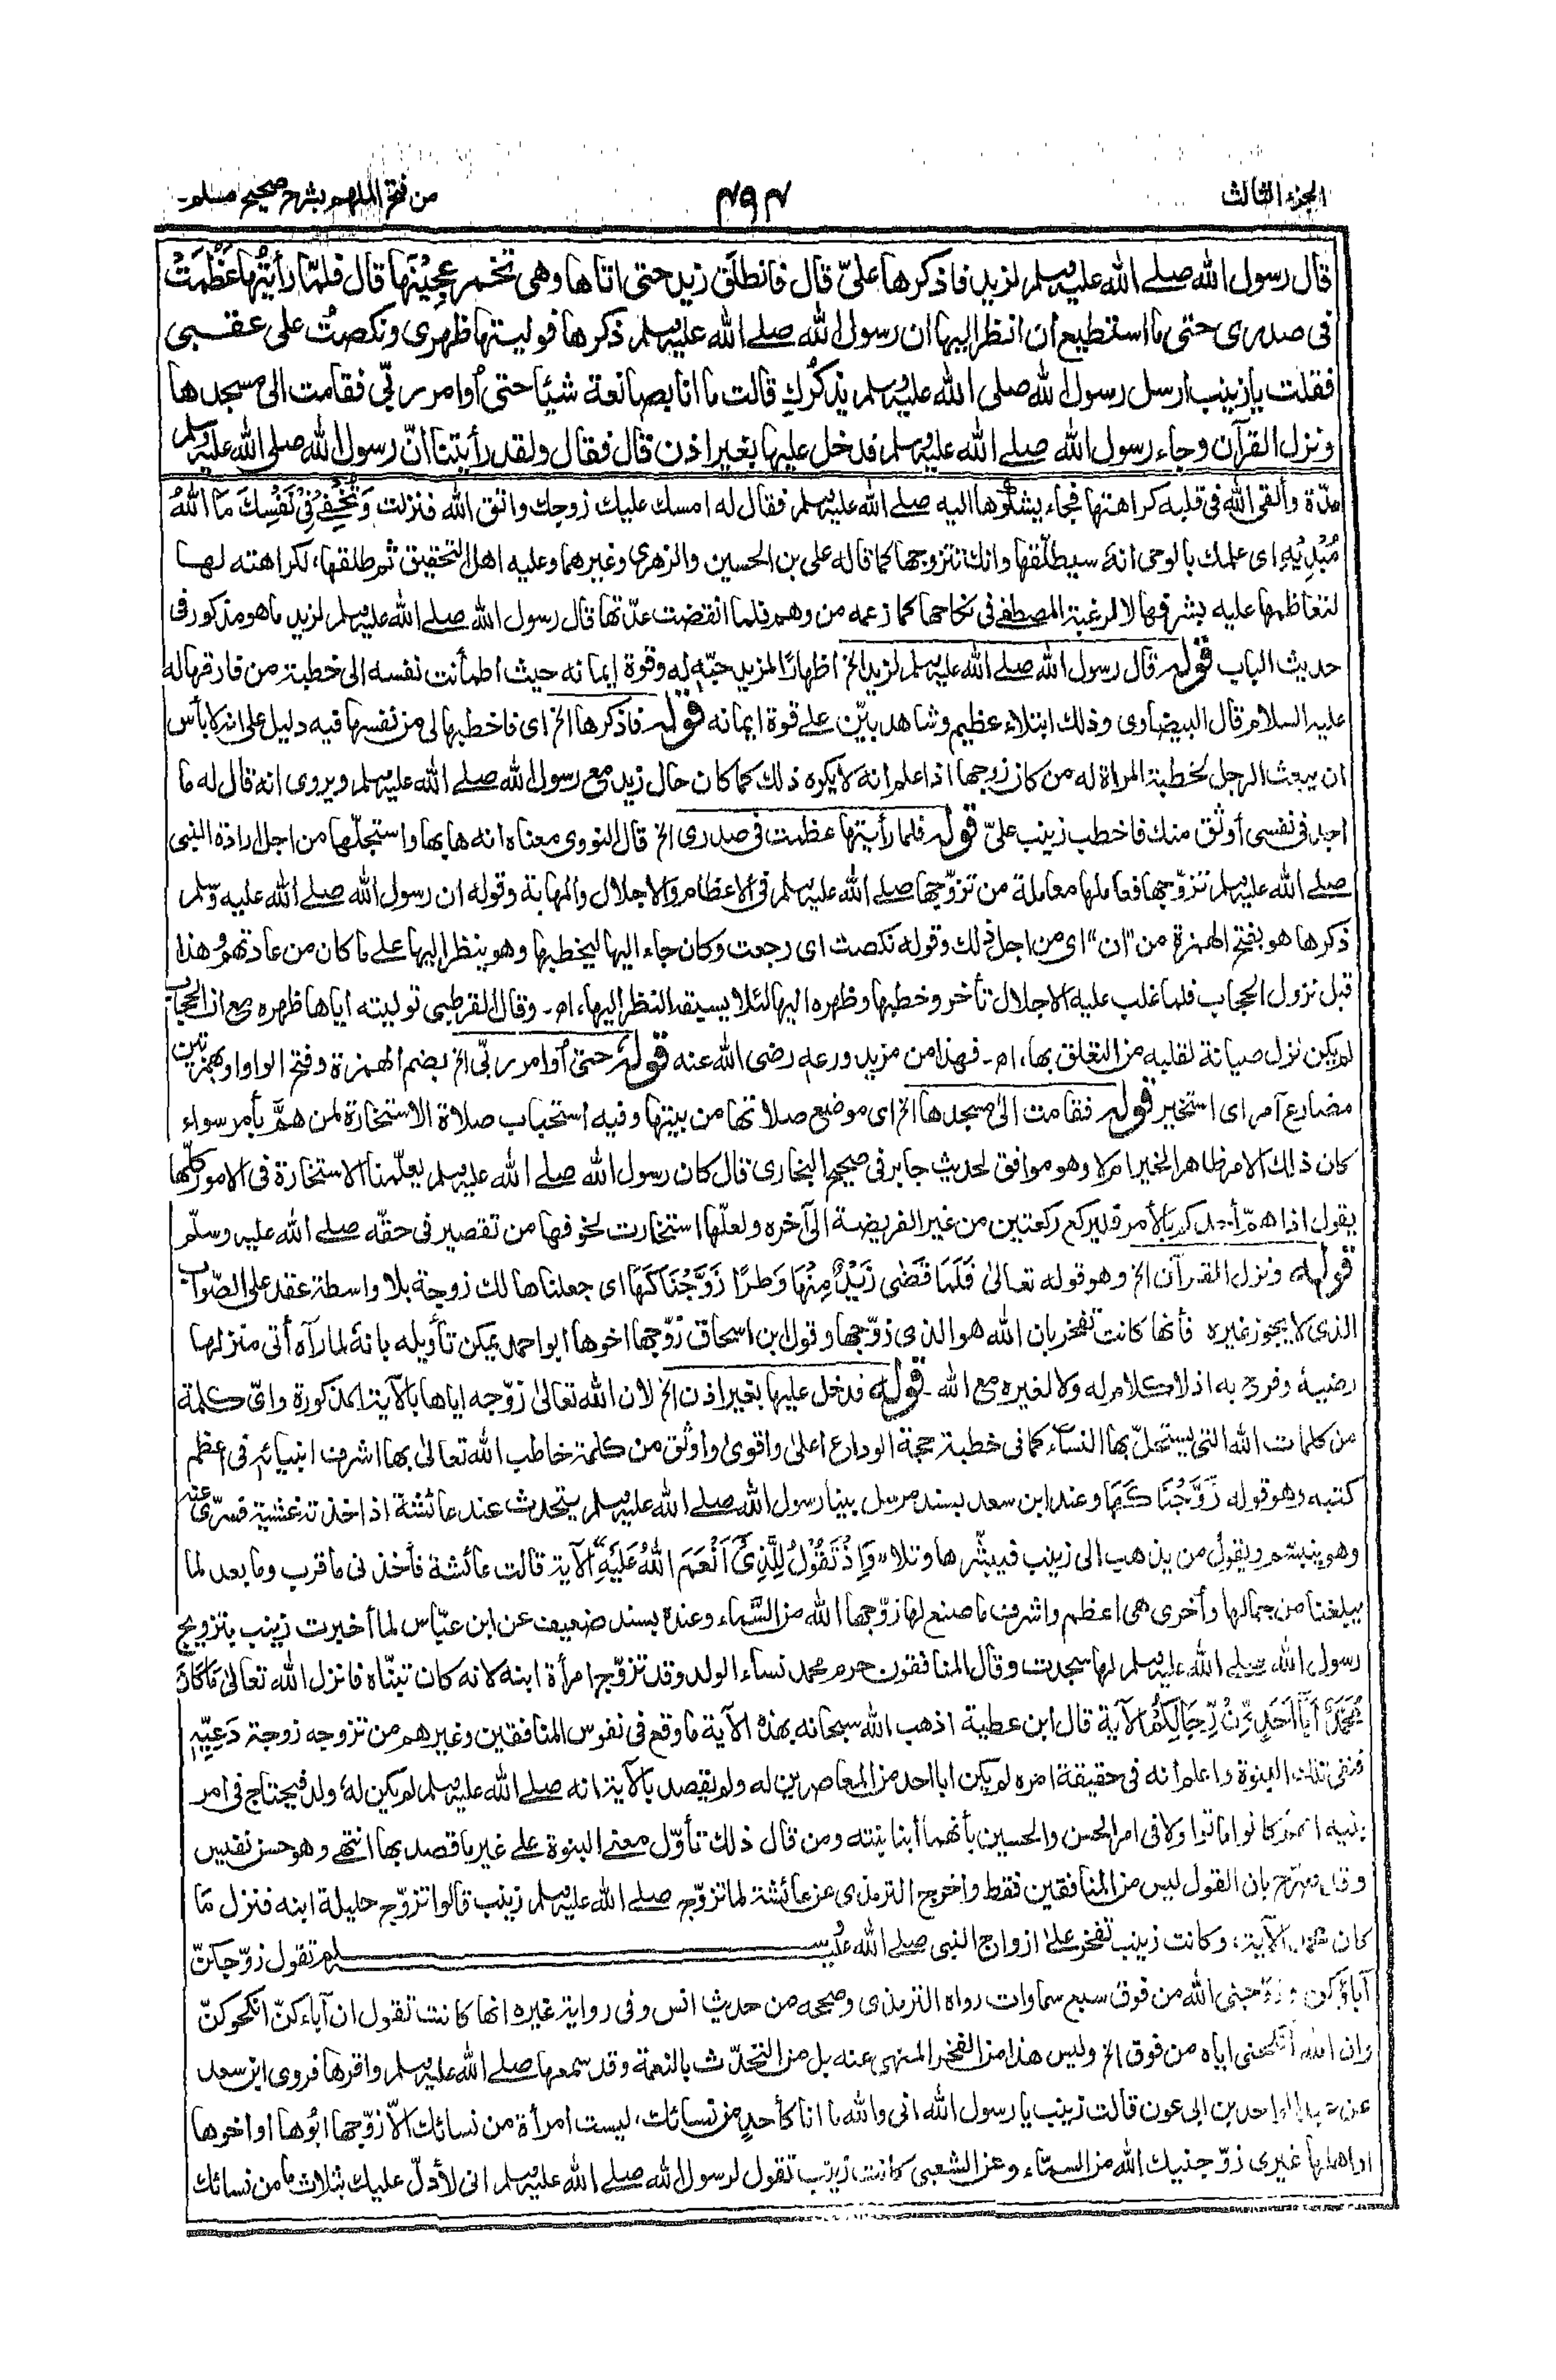 الجزء الثالث
٤٩٤
من فتح الملهم بشرح صحيح مسلم-
قال رسول الله صلے الله عليہ وسلم لزيد فاذكرها علیّ قال فانطلَق زيد حتی اتاها وهی تُخمر عجِيْنَها قال فلمّا رأيتُها عَظُمَتْ
فی صدری حتی ما استطيع ان انظر اليها ان رسول الله صلے الله عليہ وسلم ذكرها فوليتها ظهری ونكصتُ علی عقبی
فقلت يا زينب ارسل رسول الله صلی الله عليہ وسلم يذكُركِ قالت ما انا بصانعة شيًا حتی أوامر ربّی فقامت الی مسجدها
ونزل القرآن وجاء رسول الله صلے الله عليہ وسلم فدخل عليها بغير اذن قال فقال ولقد رأيتنا انّ رسول الله صلی الله عليہ وسلم
مدّة وألقی الله فی قلبه كراهتها فجاء يشكوها اليه صلے الله عليہ وسلم فقال له امسك عليك زوجك واتق الله فنزلت وَتُخْفِیْ فِیْ نَفْسِكَ مَا اللّٰهُ
مُبْدِيْهِ ای علمك بالوحی انهٗ سيطلّقها وانك تتزوجها كما قاله علی بن الحسين والزهری وغيرهما وعليه اهل التحقيق ثم طلقها، لكراهته لها
لتعاظمها عليه بشرفها لا لرغبة المصطفٰے فی نكاحها كما زعمه من وهم فلما انقضت عدّتها قال رسول الله صلے الله عليہ وسلم لزيد ما هو مذكور فی
حديث الباب قوله قال رسول الله صلے الله عليہ وسلم لزيد الخ اظهارًا لمزيد حبّه له وقوة ايمانه حيث اطمأنت نفسه الی خطبة من فارقها له
عليه السلام قال البيضاوی وذلك ابتلاء عظيم وشاهد بيّن علے قوة ايمانه قوله فاذكرها الخ ای فاخطبها لی من نفسها فيه دليل علی انه لا بأس
ان يبعث الرجل لخطبة المرأة له من كان زوجها اذا علم انه لا يكره ذلك كما كان حال زيد مع رسول الله صلے الله عليہ وسلم ويروی انه قال له ما
اجد فی نفسی أوثق منك فاخطب زينب علیّ قوله فلما رأيتها عظمت فی صدری الخ قال النووی معناه انه هابها واستجلّها من اجل ارادة النبی
صلے الله عليہ وسلم تزوّجها فعاملها معاملة من تزوّجها صلے الله عليہ وسلم فی الاعظام والاجلال والمهابة وقوله ان رسول الله صلے الله عليه وسّلم
ذكرها هو بفتح الهمزة من "ان" ای من اجل ذلك وقوله نكصت ای رجعت وكان جاء اليها ليخطبها وهو ينظر اليها علے ما كان من عادتهم وهذا
قبل نزول الحجاب فلما غلب عليه الاجلال تأخر وخطبها وظهره اليها لئلا يسبقه النظر اليها، اه- وقال القرطبی توليته اياها ظهره مع ان الحجاب
لم يكن نزل صيانة لقلبه من التعلق بها، اه- فهذا من مزيد ورعه رضی الله عنه قوله حتی أوامر ربّی الخ بضم الهمزة وفتح الواو او بهمزتين
مضارع آمر ای استخير قوله فقامت الی مسجدها الخ ای موضع صلاتها من بيتها وفيه استحباب صلاة الاستخارة لمن همَّ بأمر سواء
كان ذلك الامر ظاهر الخير ام لا وهو موافق لحديث جابر فی صحيح البخاری قال كان رسول الله صلے الله عليہ وسلم يعلّمنا الاستخارة فی الامور كلّها
يقول اذا همّ أحدكم بالأمر فليركع ركعتين من غير الفريضة الی آخره ولعلّها استخارت لخوفها من تقصير فی حقّه صلے الله عليه وسلّم
قوله ونزل القرآن الخ وهو قوله تعالیٰ فَلَمَّا قَضٰی زَيْدٌ مِنْهَا وَطَرًا زَوَّجْنَاكَهَا ای جعلناها لك زوجة بلا واسطة عقد علی الصّواب
الذی لا يجوز غيره فأنها كانت تفخر بان الله هو الذی زوّجها وقول ابن اسحاق زوّجها اخوها ابو احمد يمكن تأويله بانهٗ لما رآه أتی منزلها
رضيهٗ وفرح به اذ لا كلام له ولا لغيره مع الله- قوله فدخل عليها بغير اذن الخ لان الله تعالیٰ زوّجه اياها بالآية المذكورة وایّ كلمة
من كلمات الله التی يستحلّ بها النساء كما فی خطبة حجة الوداع اعلیٰ واقویٰ واوثق من كلمة خاطب الله تعالیٰ بها اشرف انبيائه فی اعظم
كتبه وهو قوله زَوَّجْنَاكَهَا وعند ابن سعد بسند مرسل بينا رسول الله صلے الله عليہ وسلم يتحدث عند عائشة اذ اخذته غشية فسرّی عنه
وهو يتبسّم ويقول من يذهب الی زينب فيبشّرها وتلا "وَاِذْ تَقُوْلُ لِلَّذِیْ اَنْعَمَ اللّٰهُ عَلَيْهِ" الآية قالت عائشة فأخذنی ما قرب وما بعد لما
يبلغنا من جمالها وأخری هی اعظم واشرف ما صنع لها زوّجها الله من السَّماء وعنده بسند ضعيف عن ابن عبّاس لما أخبرت زينب بتزويج
رسول الله صلے الله عليہ وسلم لها سجدت وقال المنافقون حرم محمد نساء الولد وقد تزوّج امرأة ابنه لانه كان تبنّاه فانزل الله تعالیٰ مَا كَانَ
مُحَمَّدٌ اَبَا اَحَدٍ مِّنْ رِّجَالِكُمْ الآية قال ابن عطية اذهب الله سبحانه بهذه الآية ما وقع فی نفوس المنافقين وغيرهم من تزوجه زوجة دَعِيّهٖ
فنفی تلك البنوة واعلم انه فی حقيقة امره لم يكن ابا احد من المعاصرين له ولم يقصد بالآية انه صلے الله عليہ وسلم لم يكن لهٗ ولد فيحتاج فی امر
بنيه انهم كانوا ماتوا ولا فی امر الحسن والحسين بأنهما ابنا بنته ومن قال ذلك تأوّل معنے البنوة علے غير ما قصد بها انتهے وهو حسن نفيس
و صرّح بان القول ليس من المنافقين فقط واخرج الترمذی عن عائشة لما تزوّج صلے الله عليہ وسلم زينب قالوا تزوّج حليلة ابنه فنزل مَا
كان محمد الآية، وكانت زينب تفخر علیٰ ازواج النبی صلے الله عليہ وسلم تقول زوّجكنّ
آباؤكن وزوّجنی الله من فوق سبع سماوات رواه الترمذی وصححه من حديث انس وفی رواية غيره انها كانت تقول ان آباءكنّ انكحوكنّ
وان الله انكحنی اياه من فوق الخ وليس هذا من الفخر المنهی عنه بل من التحدّث بالنعمة وقد سمعها صلے الله عليہ وسلم واقرها فروی ابن سعد
عن عبد الواحد بن ابی عون قالت زينب يا رسول الله انی والله ما انا كأحدٍ من نسائك، ليست امرأة من نسائك الاّ زوّجها ابُوها او اخوها
او اهلها غيری زوّجنيك الله من السمّاء وعن الشعبی كانت زينب تقول لرسول الله صلے الله عليہ وسلم انی لأدلّ عليك بثلاث ما من نسائك